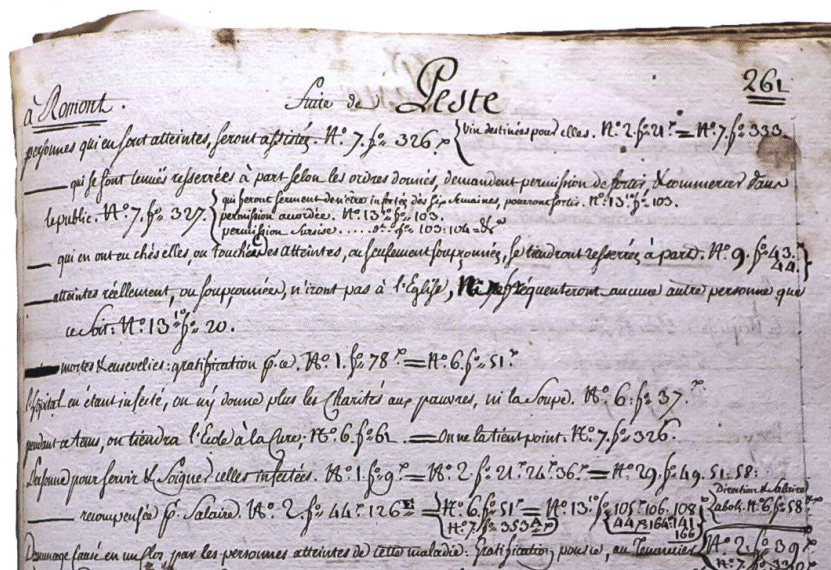 261
à Romont. Suite de Peste
personnes qui en sont atteintes, seront assistés. N.º 7. f.º 326. vin destinées pour elles. N.º 2. f.º 21.vº = N.º 7. f.º 333.
qui se sont tenuës resserrées à part selon les ordres donnés, demandent permission de sortir, & commercer dans
le public. N.º 7. f.º 327.
qui feront serment de n'être infectés dès six semaines, pourront sortir. N.º 13. f.º 103.
permission accordée. N.º 13. f.º 103.
permission sursise ..... dº. f.º 103: 104.
qui en ont eu chés elles, ou touché des atteintes, ou seulement soupçonnées, se tiendront resserrées à part. N.º 9. f.º 43.
44.
atteintes réellement, ou soupçonnées, n'iront pas à l'Eglise, Ni fréquenteront aucune autre personne que
ce soit. N.º 13. f.º 20.
mortes & ensevelies: gratification p. ce. N.º 1. f.º 78.vº = N.º 6. f.º 51.vº
l'hôpital en étant infecté, on n'y donne plus les Charités aux pauvres, ni la Soupe. N.º 6. f.º 37.vº
pendant ce tems, on tiendra l'Ecole à la Cure; N.º 6. f.º 61. = On ne la tient point. N.º 7. f.º 326.
Personne pour servir & Soigner celles infectées. N.º 1. f.º 9.vº = N.º 2. f.º 21.vº 24.vº 36.vº = N.º 29. f.º 49. 51. 58:
Direction & Salaire
aboli. N.º 6. f.º 58.vº
recompensée p. Salaire. N.º 2. f.º 44.vº 126. = N.º 6. f.º 51.vº = N.º 13. f.º 105.vº 106. 108
N.º 7. f.º 353
141
166
Dommage causé en un clos par les personnes atteintes de cette maladie: Gratification pour ce, au Tenancier N.º 2. f.º 39.vº